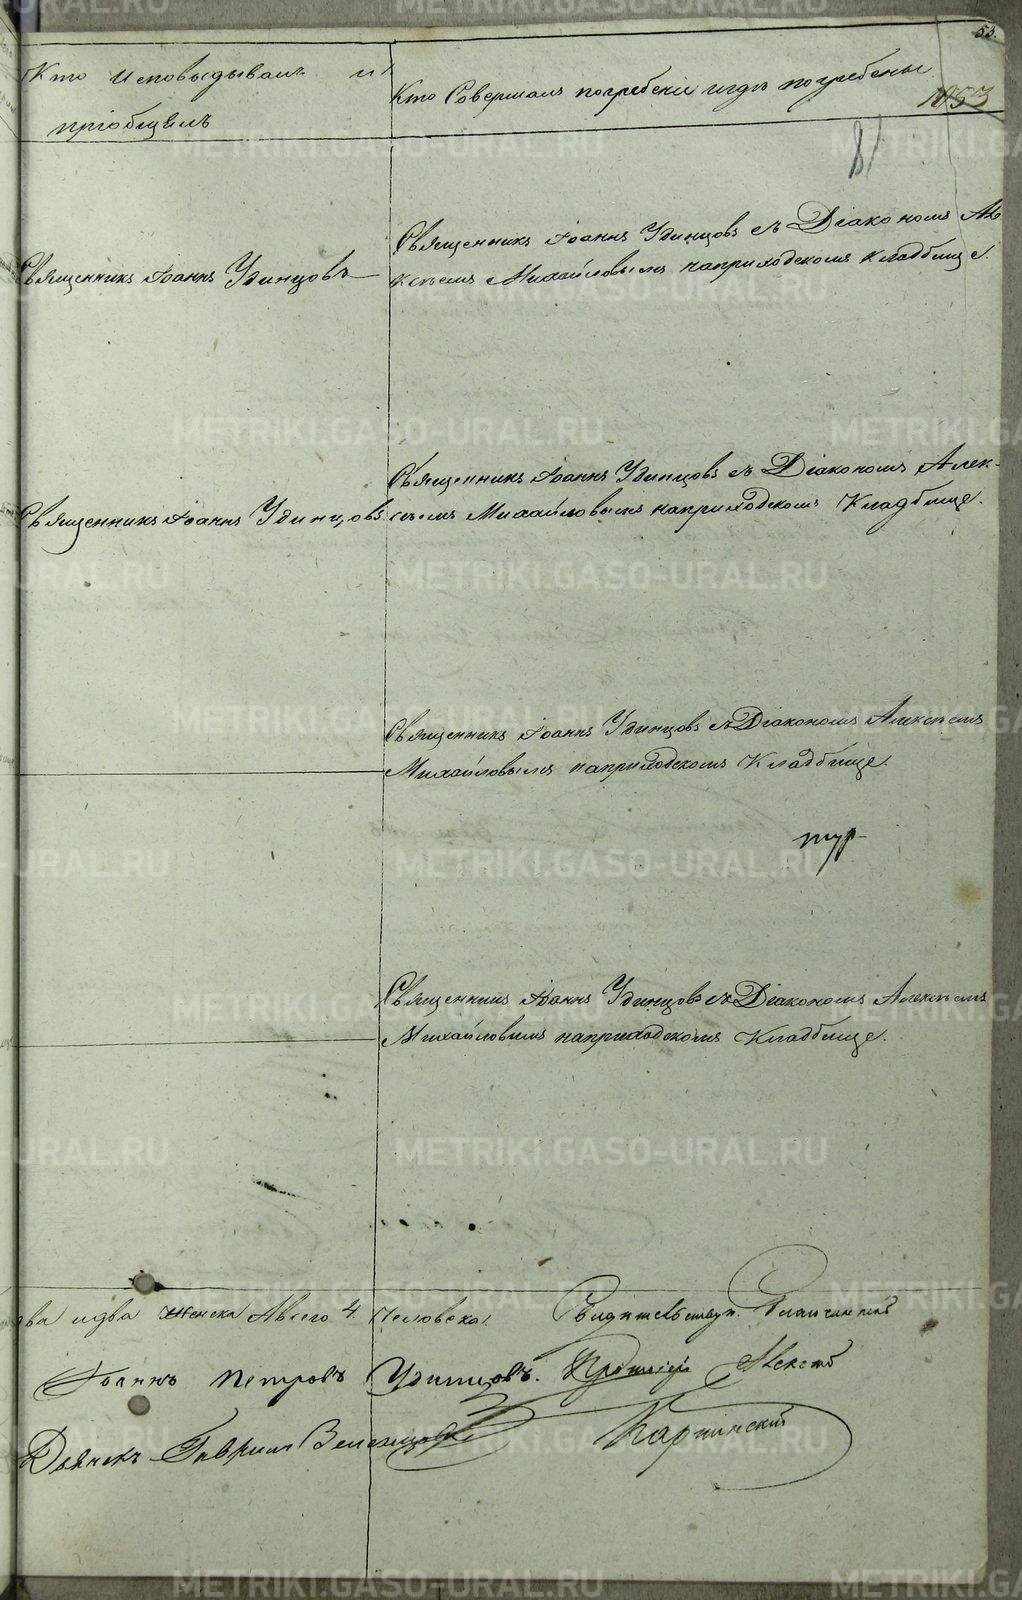 53.
Кто Исповѣдывалъ и
пріобщилъ
Кто Совершалъ погребеніе и гдѣ погребены
1053
81
Священникъ Іоаннъ Удинцовъ
Священникъ Іоаннъ Удинцовъ съ Діакономъ Але
ксѣемъ Михайловымъ на приходскомъ кладбище.
Священникъ Іоаннъ Удинцовъ
Священникъ Іоаннъ Удинцовъ съ Діакономъ Алек-
сѣемъ Михайловымъ на приходскомъ Кладбище.
Священникъ Іоаннъ Удинцовъ съ Діакономъ Алексѣемъ
Михайловымъ на приходскомъ Кладбище.
Священникъ Іоаннъ Удинцовъ съ Діакономъ Алексѣемъ
Михайловымъ на приходскомъ Кладбище.
два и два Женска А всего 4. Человека.
Іоаннъ Петровъ Удинцовъ.
Дьячекъ Гавриил
Свидетельствовал Благочинный
Протоіерей Алексѣй
Карпинскій
METRIKI.GASO-URAL.RU